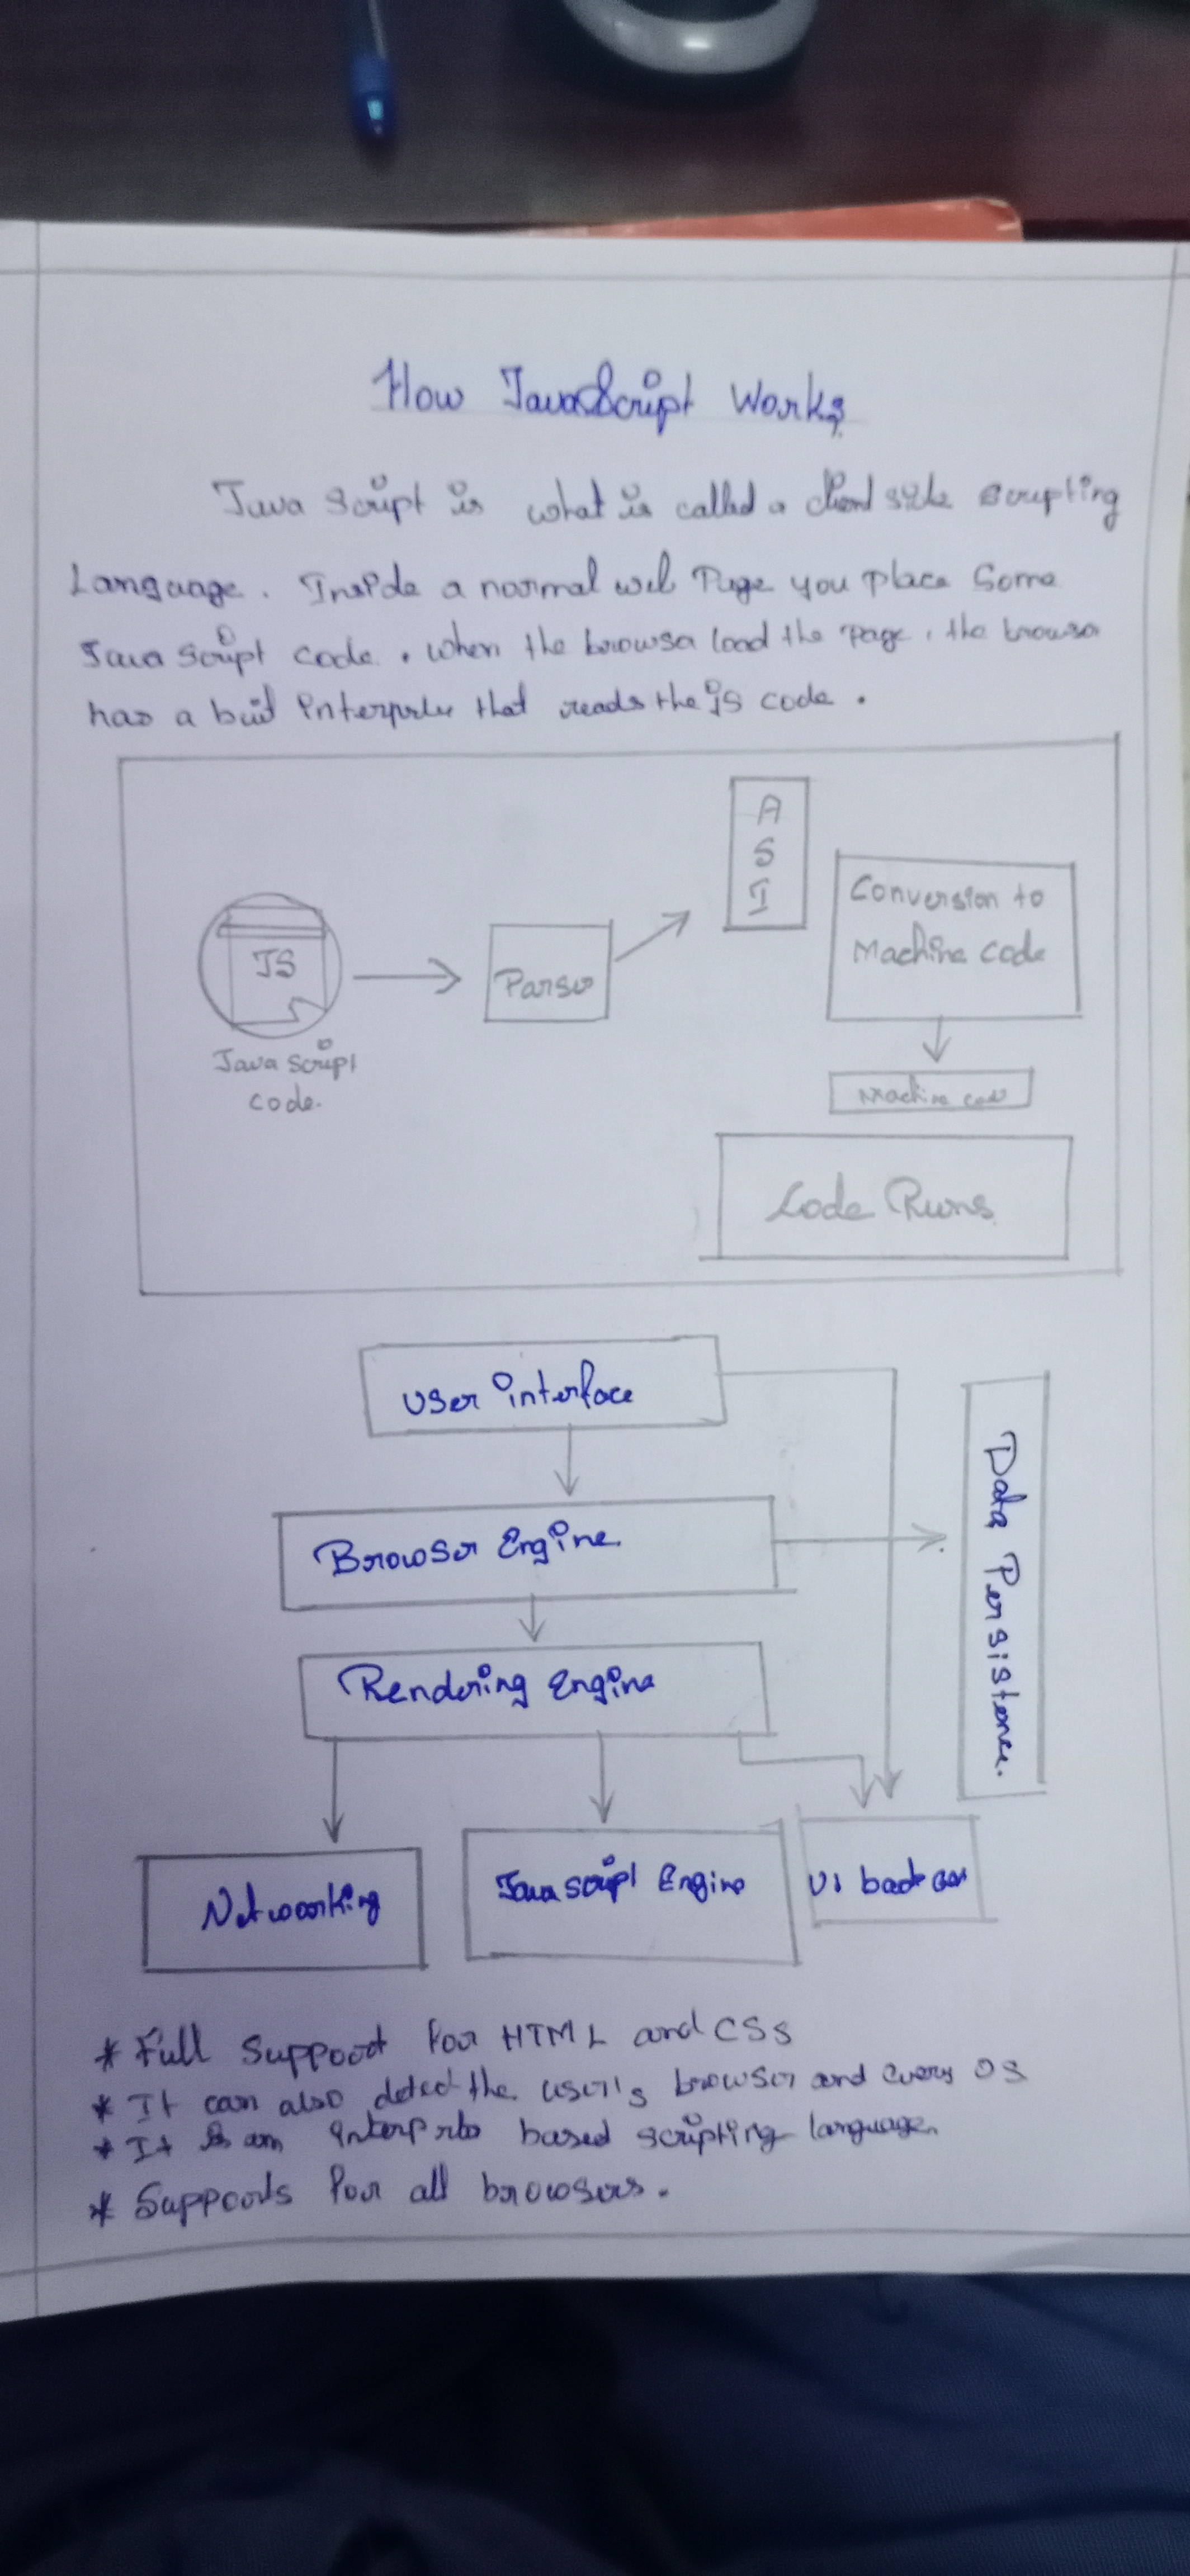 How JavaScript Works
Java Script is what is called a client side scripting
Language. Inside a normal web Page you place Some
Java Script code. when the browser load the page, the browser
has a buit interpreter that reads the js code.
A
S
I
Conversion to
Machine code
JS
Parser
Java Script
code.
Machine code
Code Runs
User interface
Browser Engine
Data Persistence.
Rendering Engine
Networking
Javascript Engine
UI
* Full Support for HTML and CSS
* It can also detect the user's browser and every OS
* It is an based scripting language.
* Supports for all browsers.